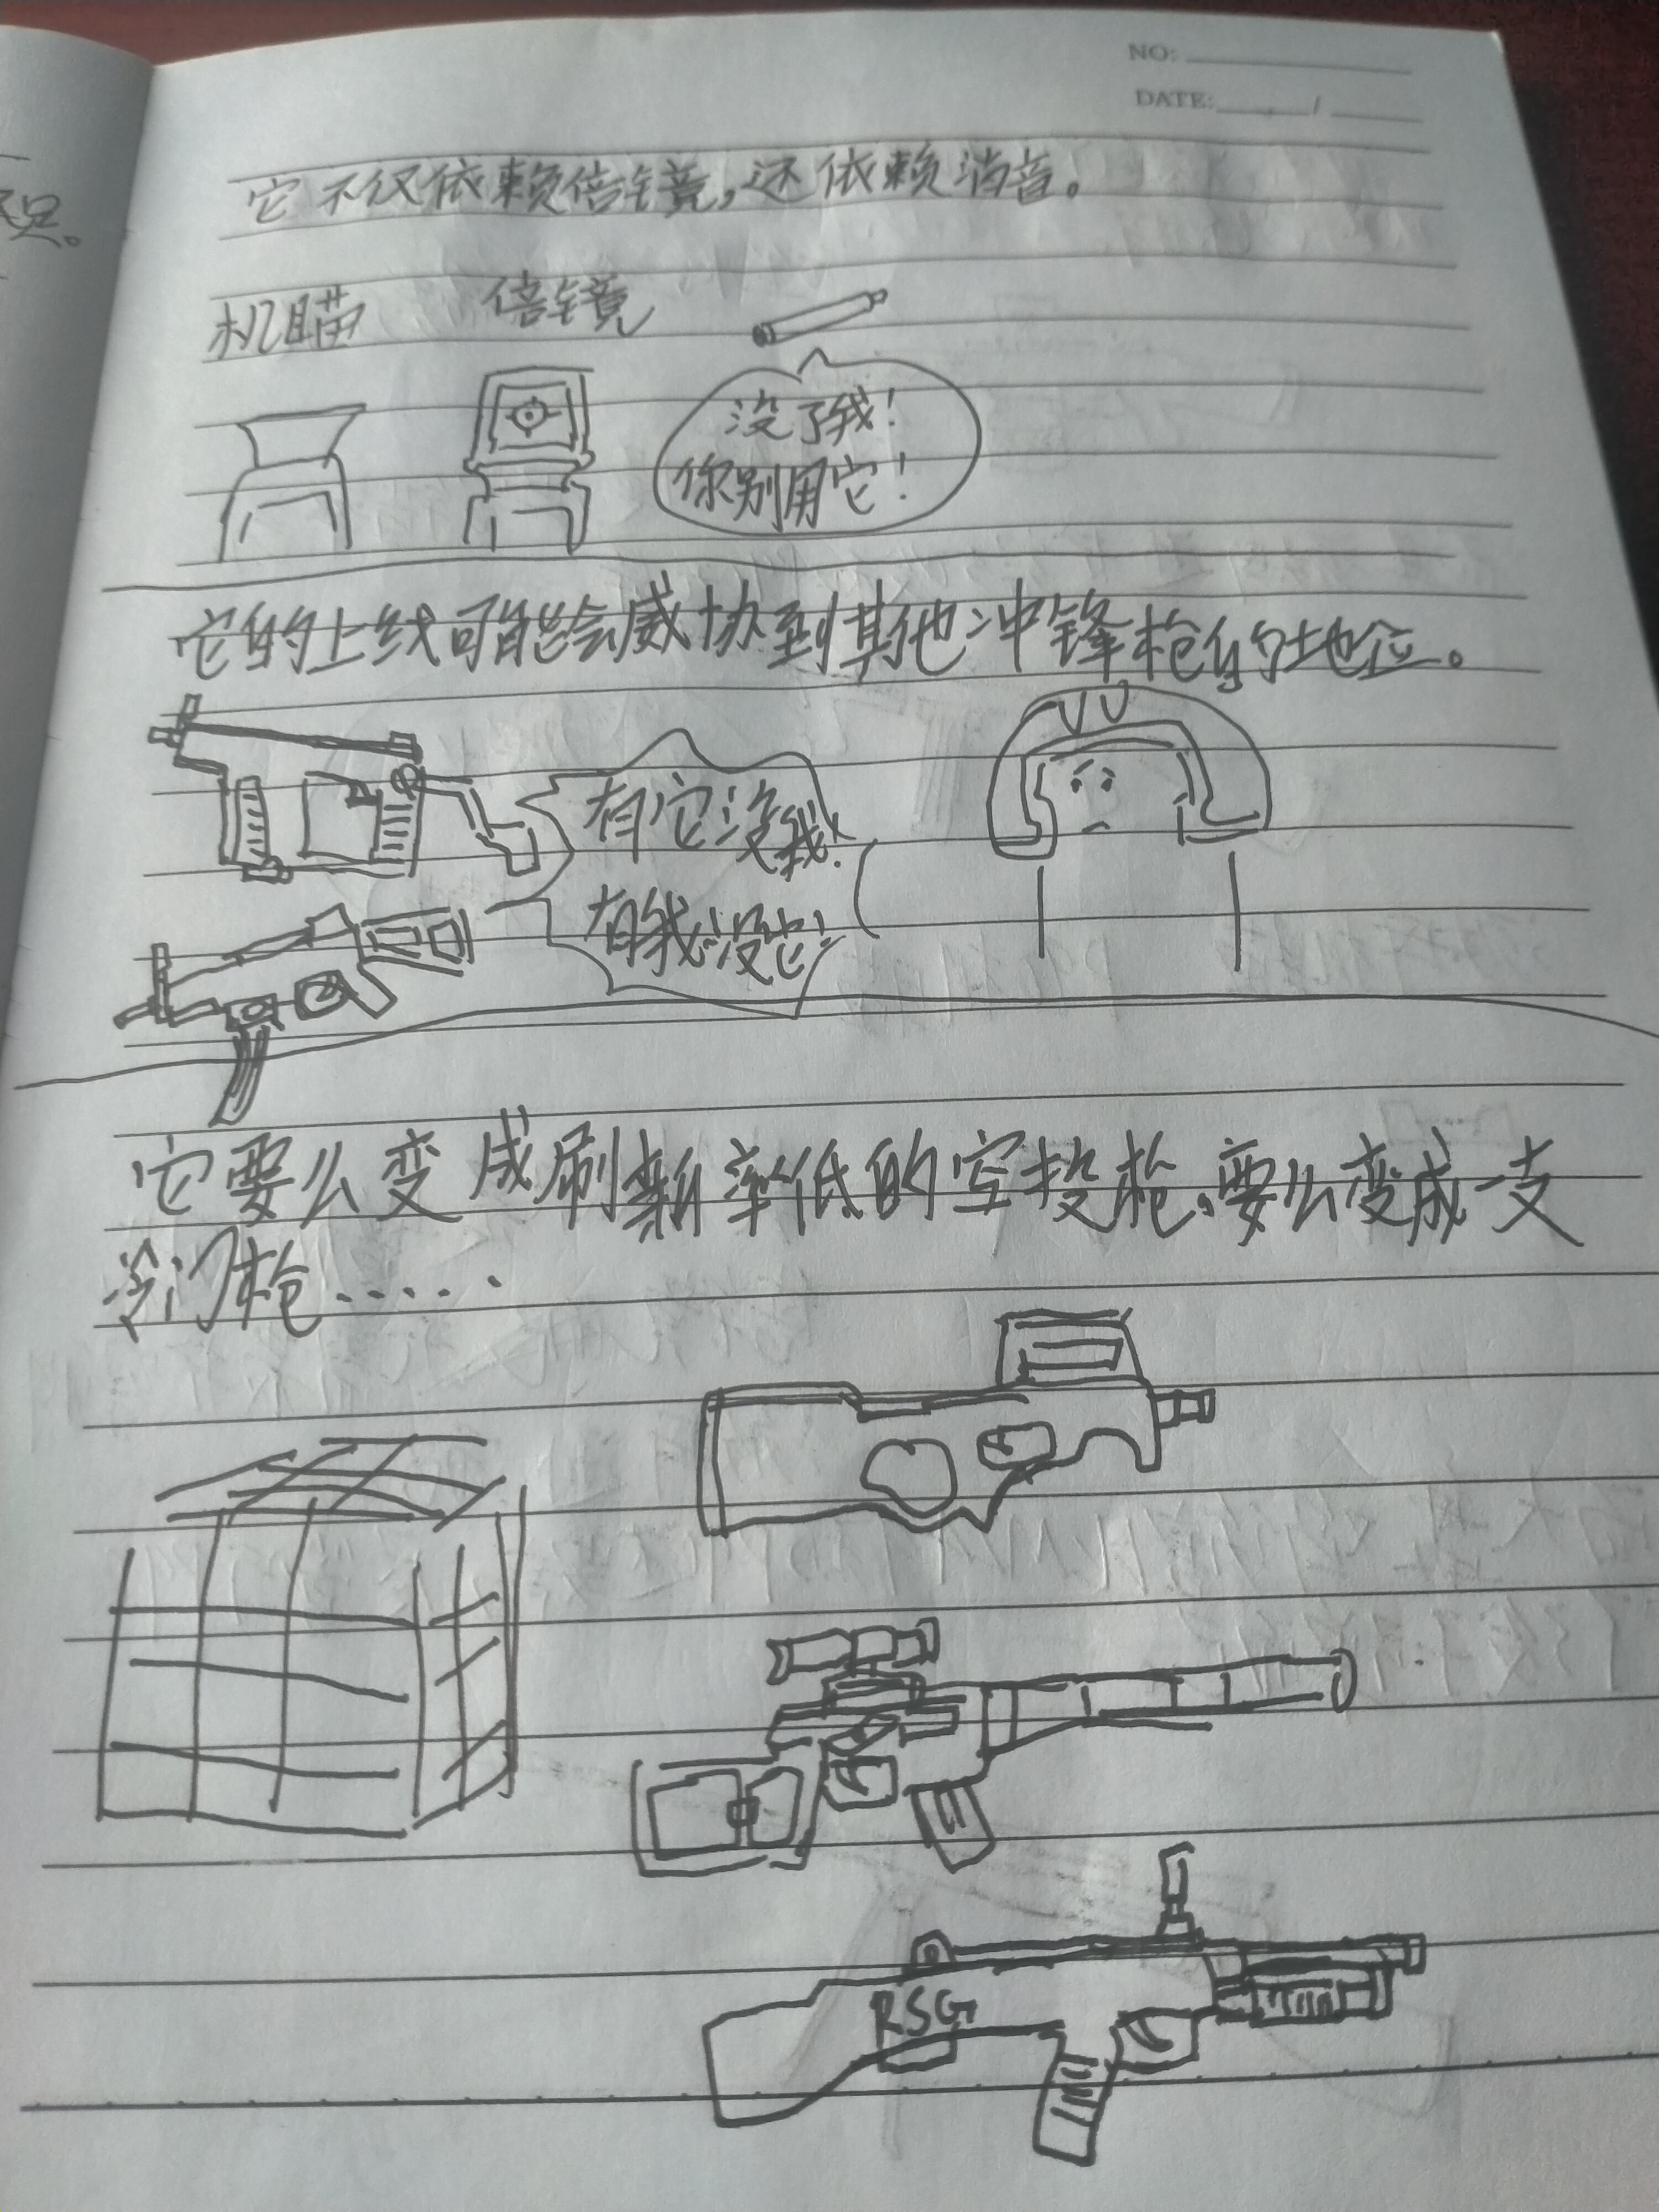 NO:
DATE: /
它不仅依赖倍镜,还依赖消音。
机瞄 倍镜
没了我!
你别用它!
它的上线可能会威协到其他冲锋枪的地位。
有它没我!
有我没它!
它要么变成刷新率低的空投枪,要么变成一支
冷门枪......
RSG